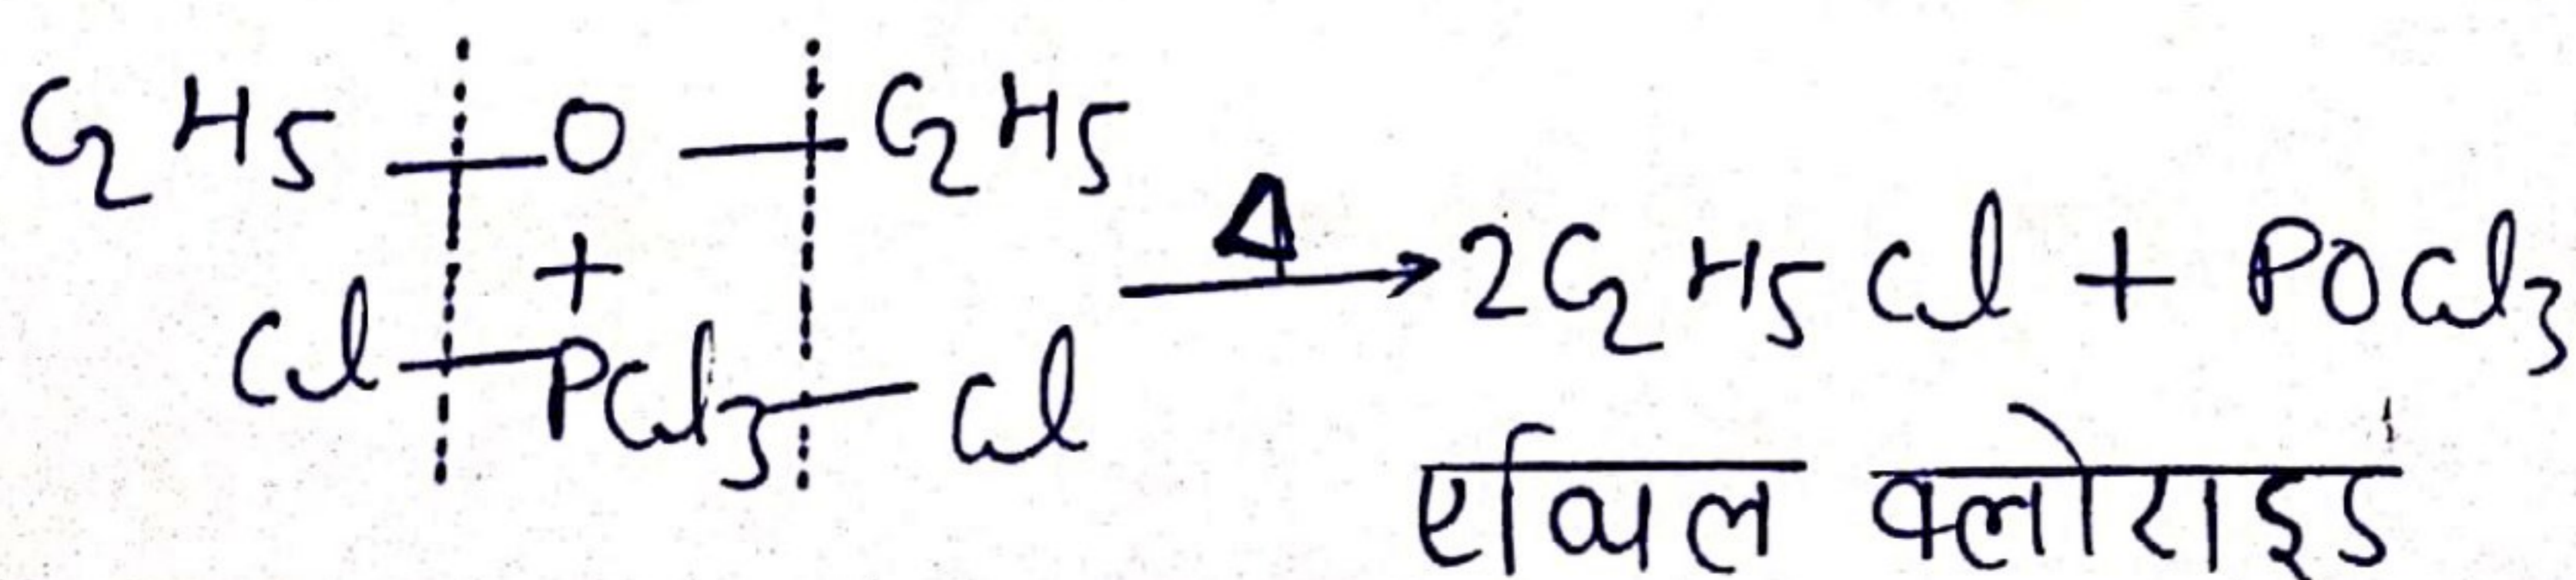 C2H5 — O — C2H5
+
Cl — PCl3 — Cl
Δ → 2C2H5Cl + POCl3
एथिल क्लोराइड